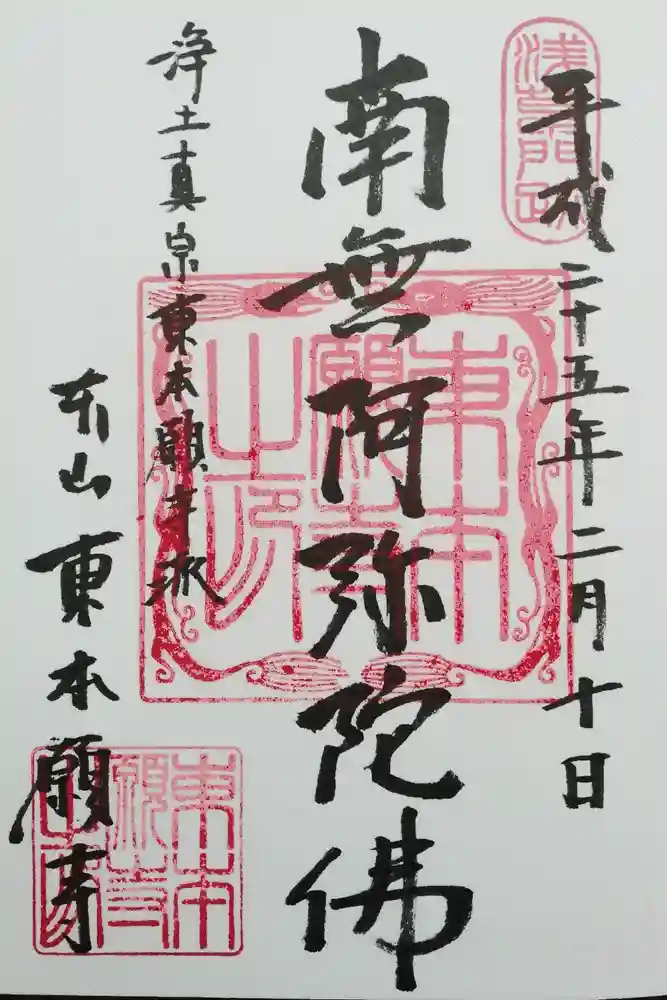 平成二十五年二月十日
南無阿弥陀佛
浄土真宗東本願寺派
本山東本願寺
東本願寺之印